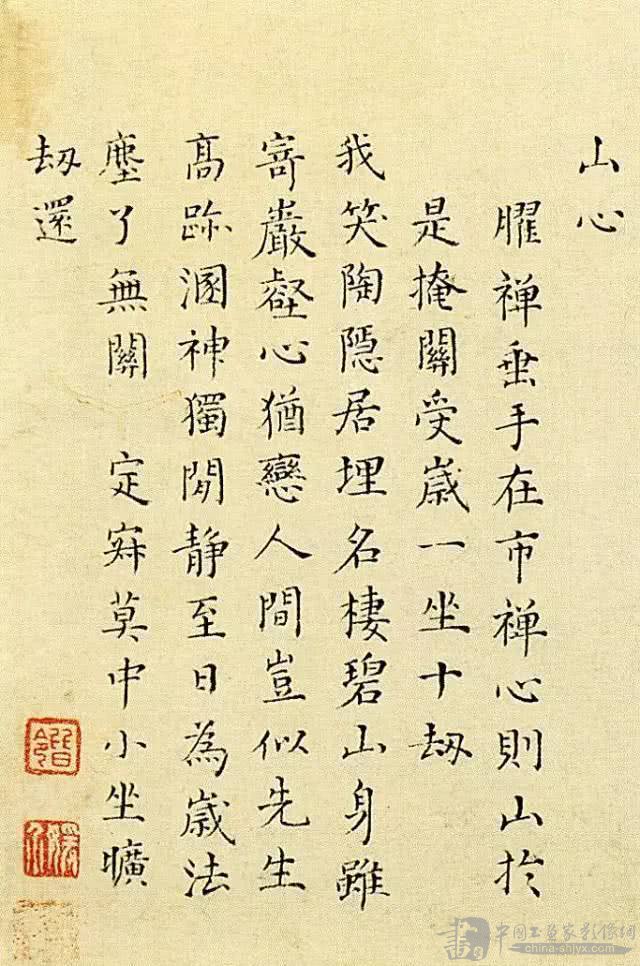 山心
臞禅垂手在市禅心則山於
是掩關受歲一坐十刼
我笑陶隱居埋名棲碧山身雖
寄巖壑心猶戀人間豈似先生
髙跡溷神獨閒静至日為歲法
塵了無關 定寂莫中小坐曠
刼還
中國书畫家影像網
china-shjyx.com